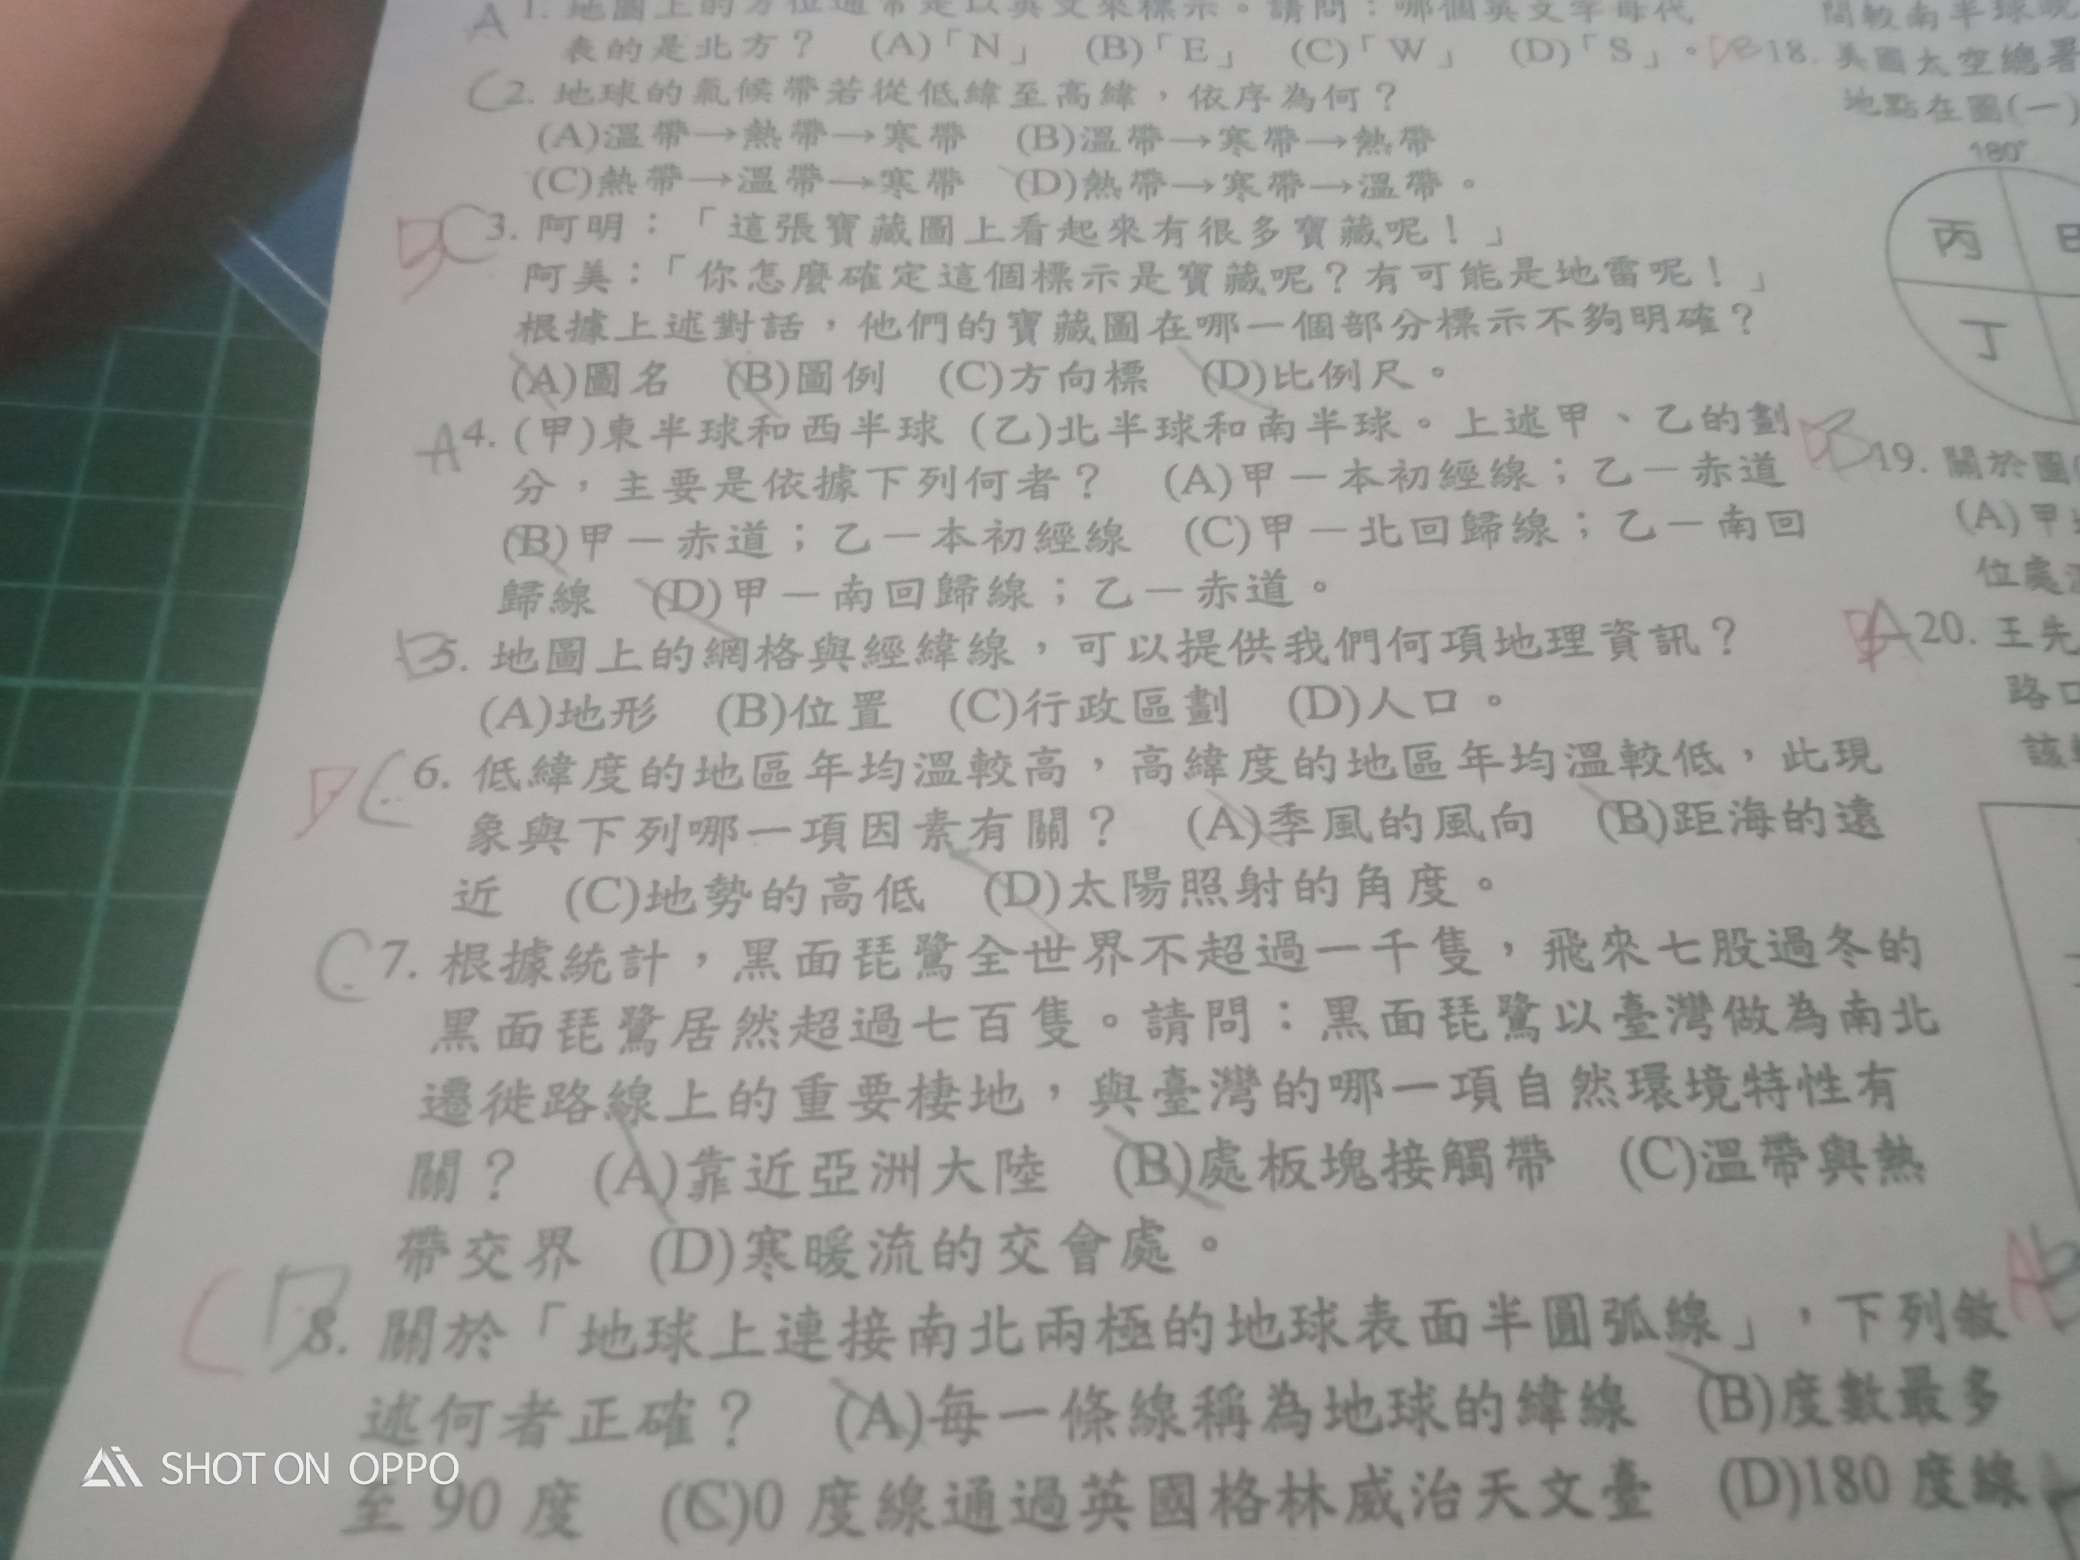 A 1. 地圖上的方位通常是以英文來標示。請問：哪個英文字母代
表的是北方？ (A)「N」 (B)「E」 (C)「W」 (D)「S」。
C 2. 地球的氣候帶若從低緯至高緯，依序為何？
(A)溫帶→熱帶→寒帶 (B)溫帶→寒帶→熱帶
(C)熱帶→溫帶→寒帶 (D)熱帶→寒帶→溫帶。
B C 3. 阿明：「這張寶藏圖上看起來有很多寶藏呢！」
阿美：「你怎麼確定這個標示是寶藏呢？有可能是地雷呢！」
根據上述對話，他們的寶藏圖在哪一個部分標示不夠明確？
(A)圖名 (B)圖例 (C)方向標 (D)比例尺。
A 4. (甲)東半球和西半球 (乙)北半球和南半球。上述甲、乙的劃
分，主要是依據下列何者？ (A)甲－本初經線；乙－赤道
(B)甲－赤道；乙－本初經線 (C)甲－北回歸線；乙－南回
歸線 (D)甲－南回歸線；乙－赤道。
B 5. 地圖上的網格與經緯線，可以提供我們何項地理資訊？
(A)地形 (B)位置 (C)行政區劃 (D)人口。
D C 6. 低緯度的地區年均溫較高，高緯度的地區年均溫較低，此現
象與下列哪一項因素有關？ (A)季風的風向 (B)距海的遠
近 (C)地勢的高低 (D)太陽照射的角度。
C 7. 根據統計，黑面琵鷺全世界不超過一千隻，飛來七股過冬的
黑面琵鷺居然超過七百隻。請問：黑面琵鷺以臺灣做為南北
遷徙路線上的重要棲地，與臺灣的哪一項自然環境特性有
關？ (A)靠近亞洲大陸 (B)處板塊接觸帶 (C)溫帶與熱
帶交界 (D)寒暖流的交會處。
C D 8. 關於「地球上連接南北兩極的地球表面半圓弧線」，下列敘
述何者正確？ (A)每一條線稱為地球的緯線 (B)度數最多
至 90 度 (C)0 度線通過英國格林威治天文臺 (D)180 度線
間較南半球
18. 美國太空總署
地點在圖(一)
180°
丙
丁
B 19. 關於圖
(A)甲
位處
A 20. 王先
路口
該
SHOT ON OPPO